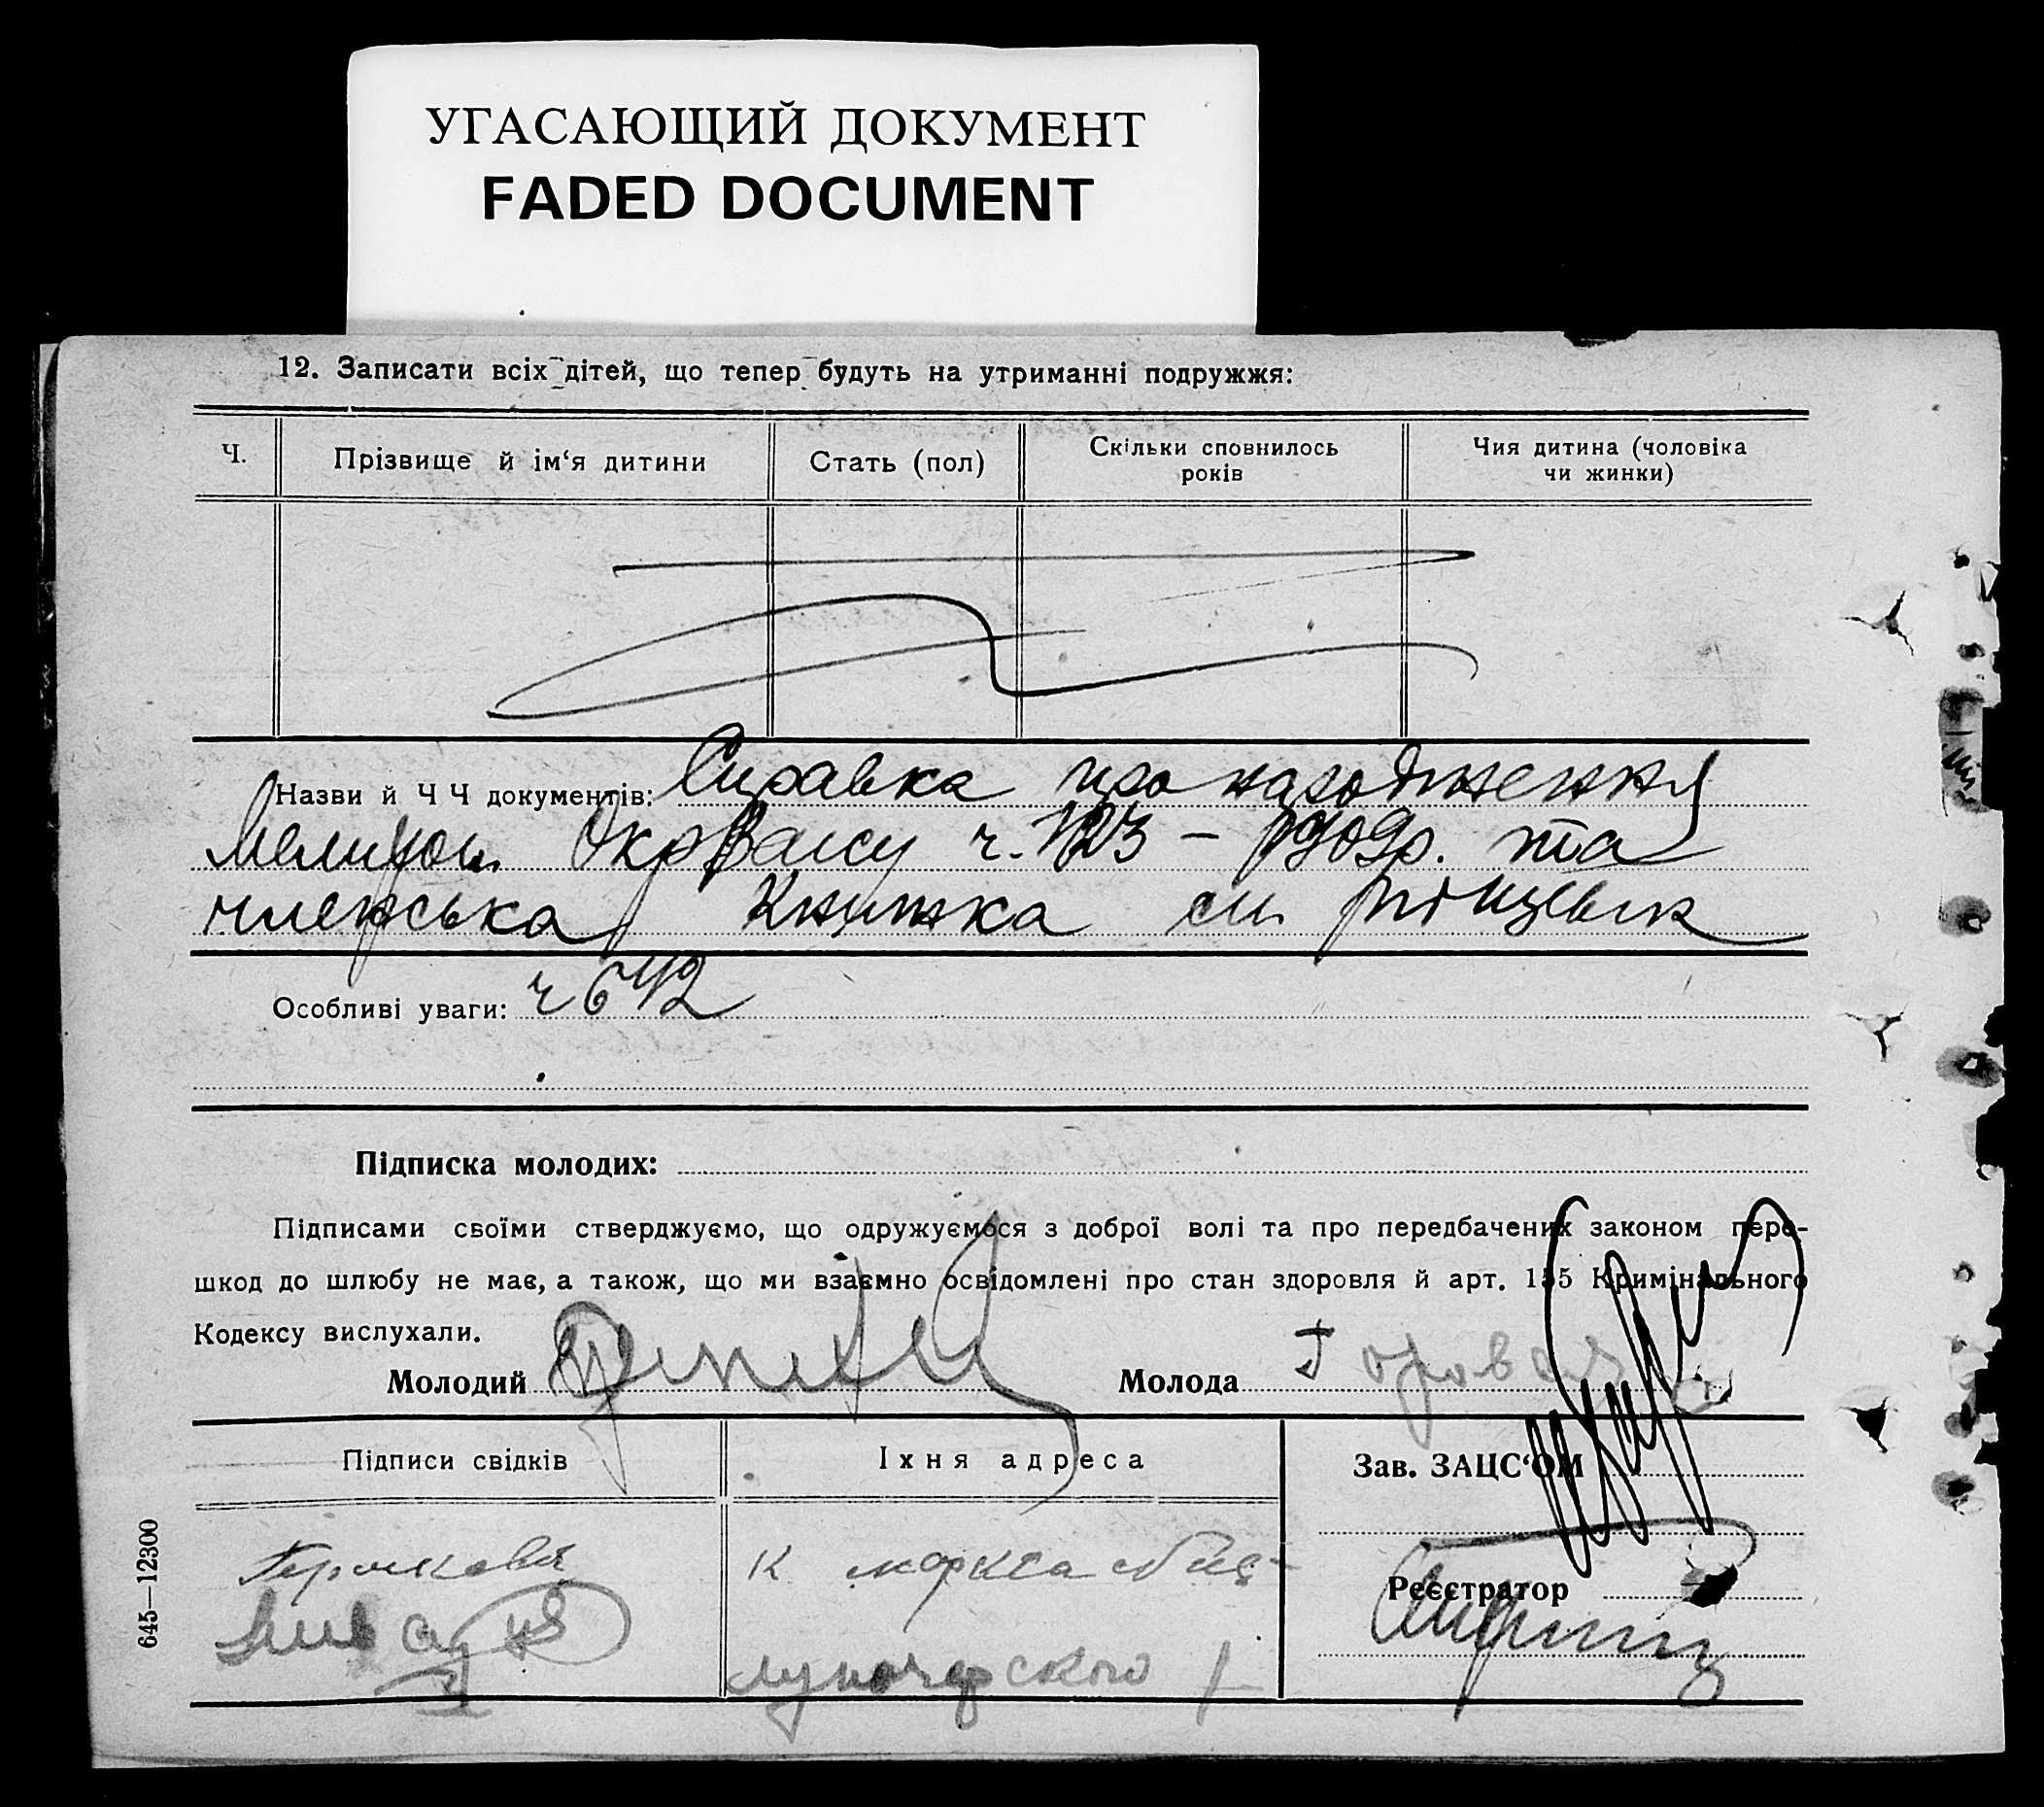 УГАСАЮЩИЙ ДОКУМЕНТ
FADED DOCUMENT
12. Записати всіх дітей, що тепер будуть на утриманні подружжя:
Ч.
Прізвище й ім‘я дитини
Стать (пол)
Скільки сповнилось
років
Чия дитина (чоловіка
чи жинки)
Назви й Ч Ч документів: Справка про народження
ч. та
членська Книжка
Особливі уваги: ч 642
Підписка молодих:
Підписами своїми стверджуємо, що одружуємося з доброї волі та про передбачених законом пере-
шкод до шлюбу не має, а також, що ми взаємно освідомлені про стан здоровля й арт. 155 Кримінального
Кодексу вислухали.
Молодий
Молода Горовая
Підписи свідків
Їхня адреса
Зав. ЗАЦС‘ОМ
К маркса
Реєстратор
луначарского
645—12300